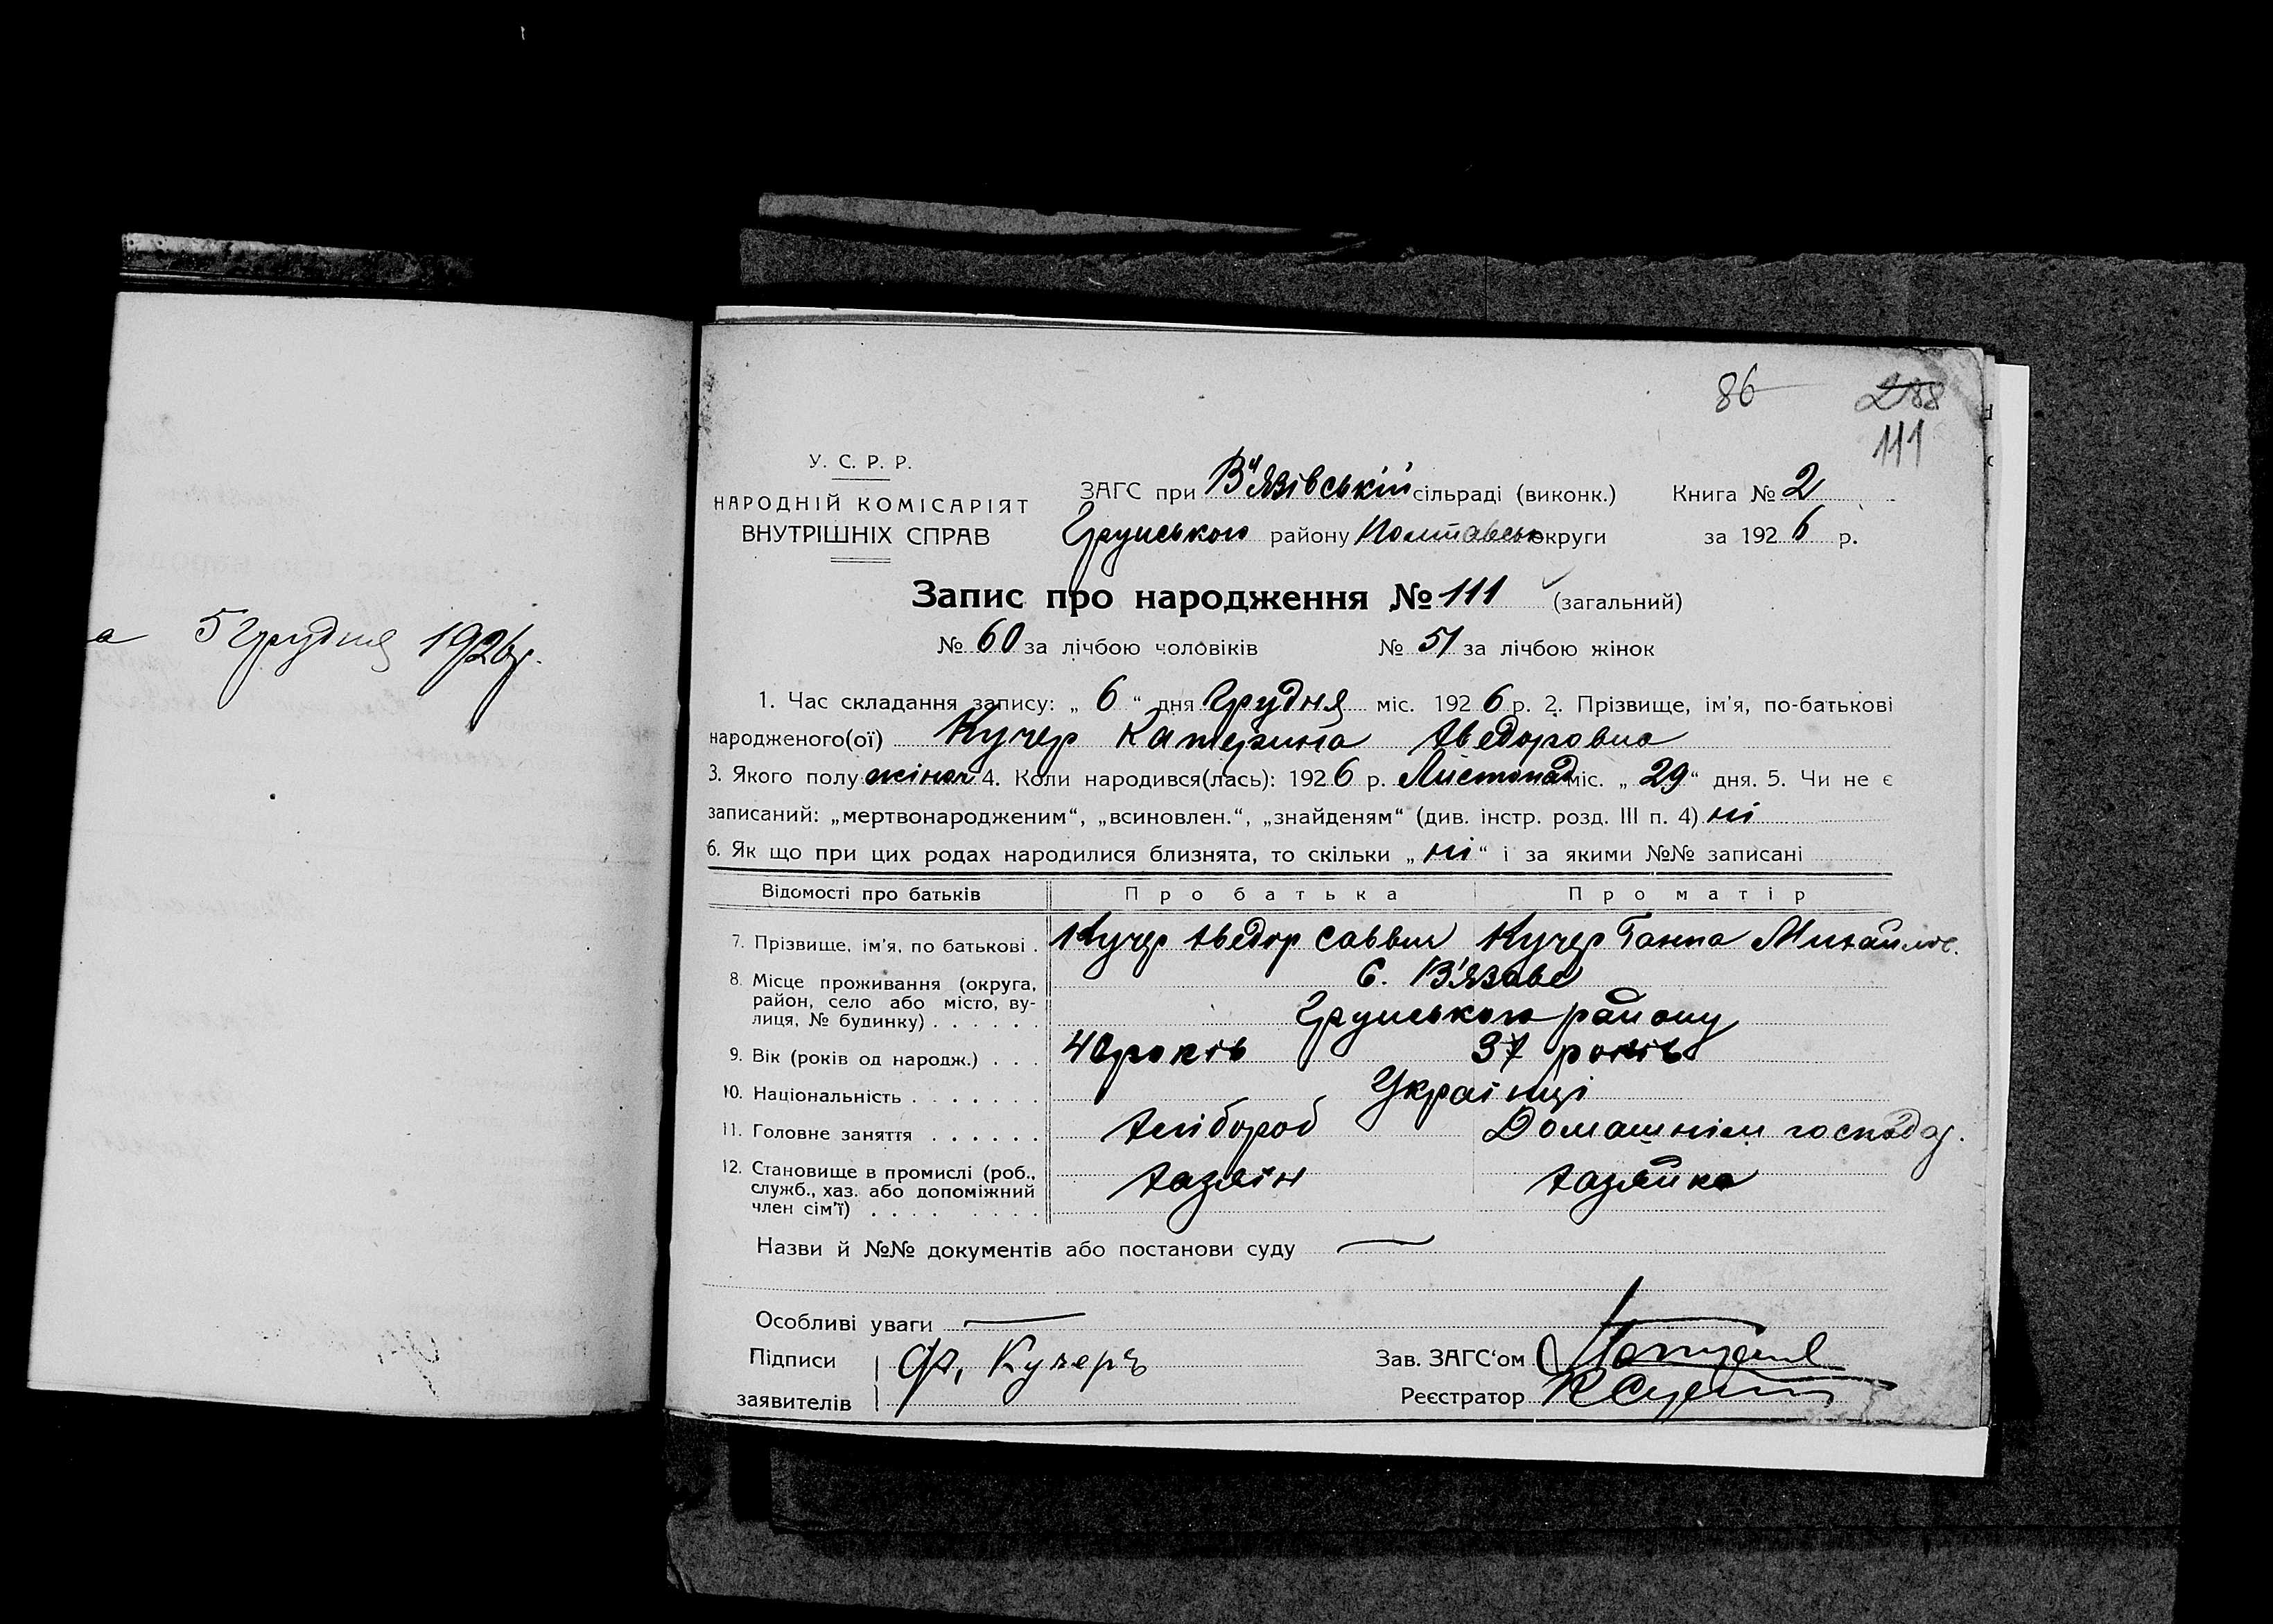 а 5 грудня 1926 р.
86 288
111
У. С. Р. Р.
НАРОДНІЙ КОМІСАРІЯТ
ВНУТРІШНІХ СПРАВ
ЗАГС при В'язівській сільраді (виконк.) Книга № 2
Грунського району Полтавськ округи за 1926 р.
Запис про народження № 111 (загальний)
№ 60 за лічбою чоловіків № 51 за лічбою жінок
1. Час складання запису: „ 6 “ дня Грудня міс. 1926 р. 2. Прізвище, ім'я, по-батькові
народженого(ої) Кучер Катерина Хведоровна
3. Якого полу жіноч 4. Коли народився(лась): 1926 р. Листопад міс. „ 29 “ дня. 5. Чи не є
записаний: „мертвонародженим“, „всиновлен.“, „знайденям“ (див. інстр. розд. III п. 4) ні
6. Як що при цих родах народилися близнята, то скільки „ ні “ і за якими №№ записані
Відомості про батьків Про батька Про матір
7. Прізвище, ім'я, по батькові . Кучер Хведор Саввич Кучер Ганна Михайлов.
8. Місце проживання (округа,
район, село або місто, ву-
лиця, № будинку) . . . . . .
с. В'язове
Грунського району
9. Вік (років од народж.) . . . 40 років 37 років
10. Національність . . . . . . . Українці
11. Головне заняття . . . . . . Хлібороб Домашнім господар.
12. Становище в промислі (роб.,
служб., хаз. або допоміжний
член сім'ї) . . . . . . . .
Хазяін Хазяйка
Назви й №№ документів або постанови суду —
Особливі уваги —
Підписи Ф. Кучеръ Зав. ЗАГС'ом
заявителів Реєстратор